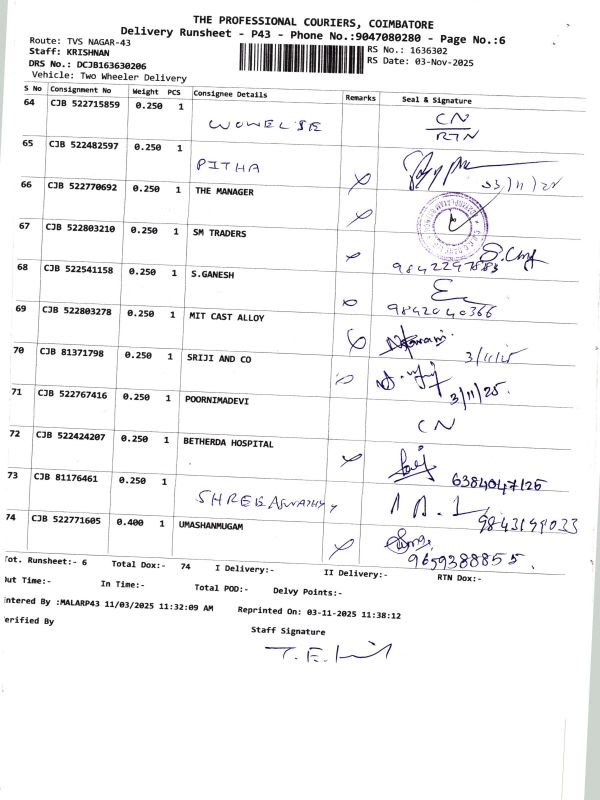 THE PROFESSIONAL COURIERS, COIMBATORE
Delivery Runsheet - P43 - Phone No.:9047080280 - Page No.:6
Route: TVS NAGAR-43
RS No.: 1636302
Staff: KRISHNAN
RS Date: 03-Nov-2025
DRS No.: DCJB163630206
Vehicle: Two Wheeler Delivery
S No Consignment No Weight PCS Consignee Details Remarks Seal & Signature
64 CJB 522715859 0.250 1 CN
RTN
65 CJB 522482597 0.250 1 PITHA
66 CJB 522770692 0.250 1 THE MANAGER
67 CJB 522803210 0.250 1 SM TRADERS
68 CJB 522541158 0.250 1 S.GANESH
9842040366
69 CJB 522803278 0.250 1 MIT CAST ALLOY
3/11/25
70 CJB 81371798 0.250 1 SRIJI AND CO
3/11/25.
71 CJB 522767416 0.250 1 POORNIMADEVI CN
72 CJB 522424207 0.250 1 BETHERDA HOSPITAL
6384047125
73 CJB 81176461 0.250 1
74 CJB 522771605 0.400 1 UMASHANMUGAM
9659388855.
Tot. Runsheet:- 6 Total Dox:- 74 I Delivery:- II Delivery:- RTN Dox:-
Out Time:- In Time:- Total POD:- Delvy Points:-
Entered By :MALARP43 11/03/2025 11:32:09 AM Reprinted On: 03-11-2025 11:38:12
Verified By
Staff Signature